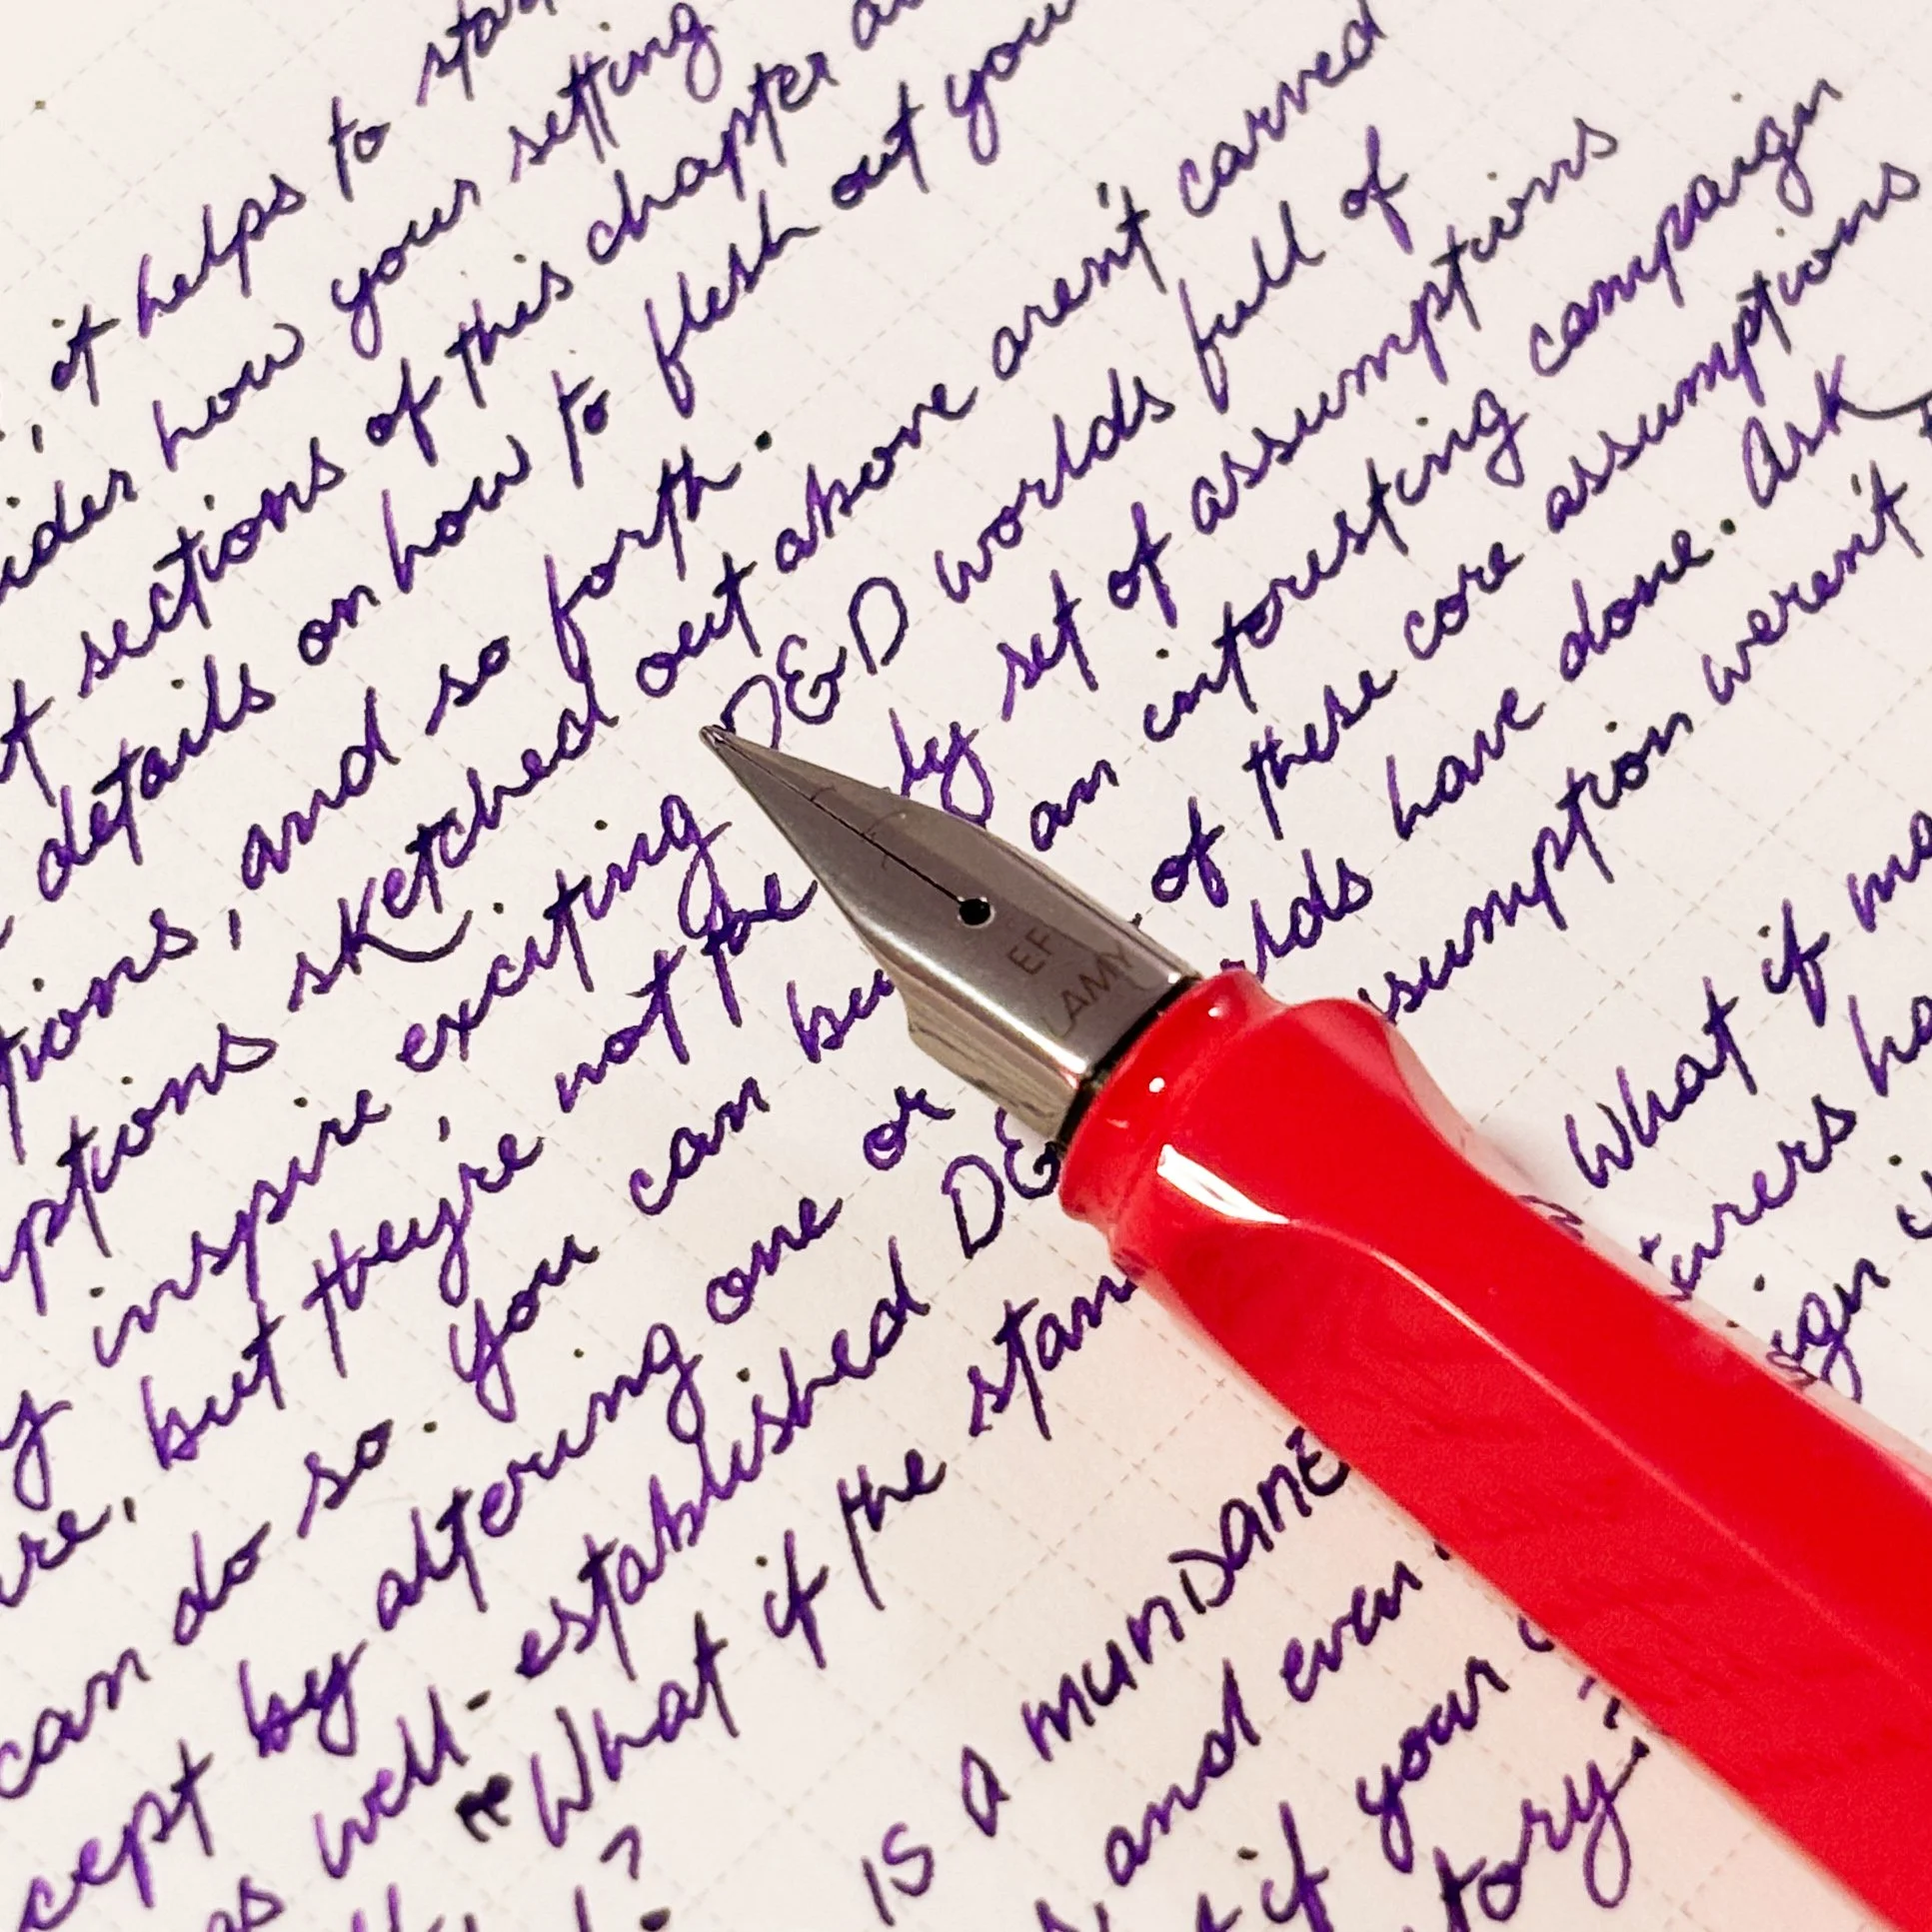 , it helps to
ider how your setting
t sections of this chapter
details on how to flesh out you
tions, and so forth.
ptions sketched out above aren't carved
y inspire exciting D&D worlds full of
re, but they're not the ly set of assumptions
can do so. You can bu an interesting campaign
cept by altering one or of these core assumptions
as well-established D& rlds have done. Ask
"What if the stan ssumption weren't
is a mundane What if
and even turers ha
if your ign
tory?
EF
LAMY